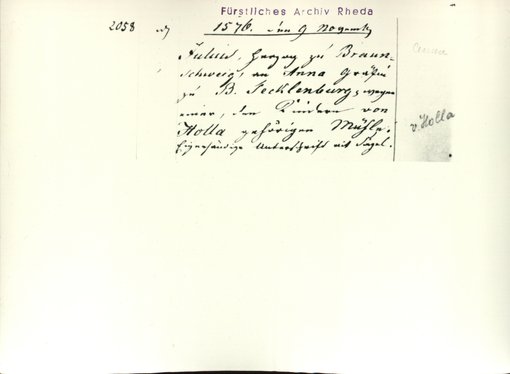 Fürstliches Archiv Rheda
2058
1576. den 9 Novemb
Julius, Herzog zu Braun-
schweig, an Anna Gräfin
zu B. Tecklenburg, wegen
einer, den Kindern von
Holla gehörigen Mühle.
Eigenhändige Unterschrift mit Siegel.
v. Holla